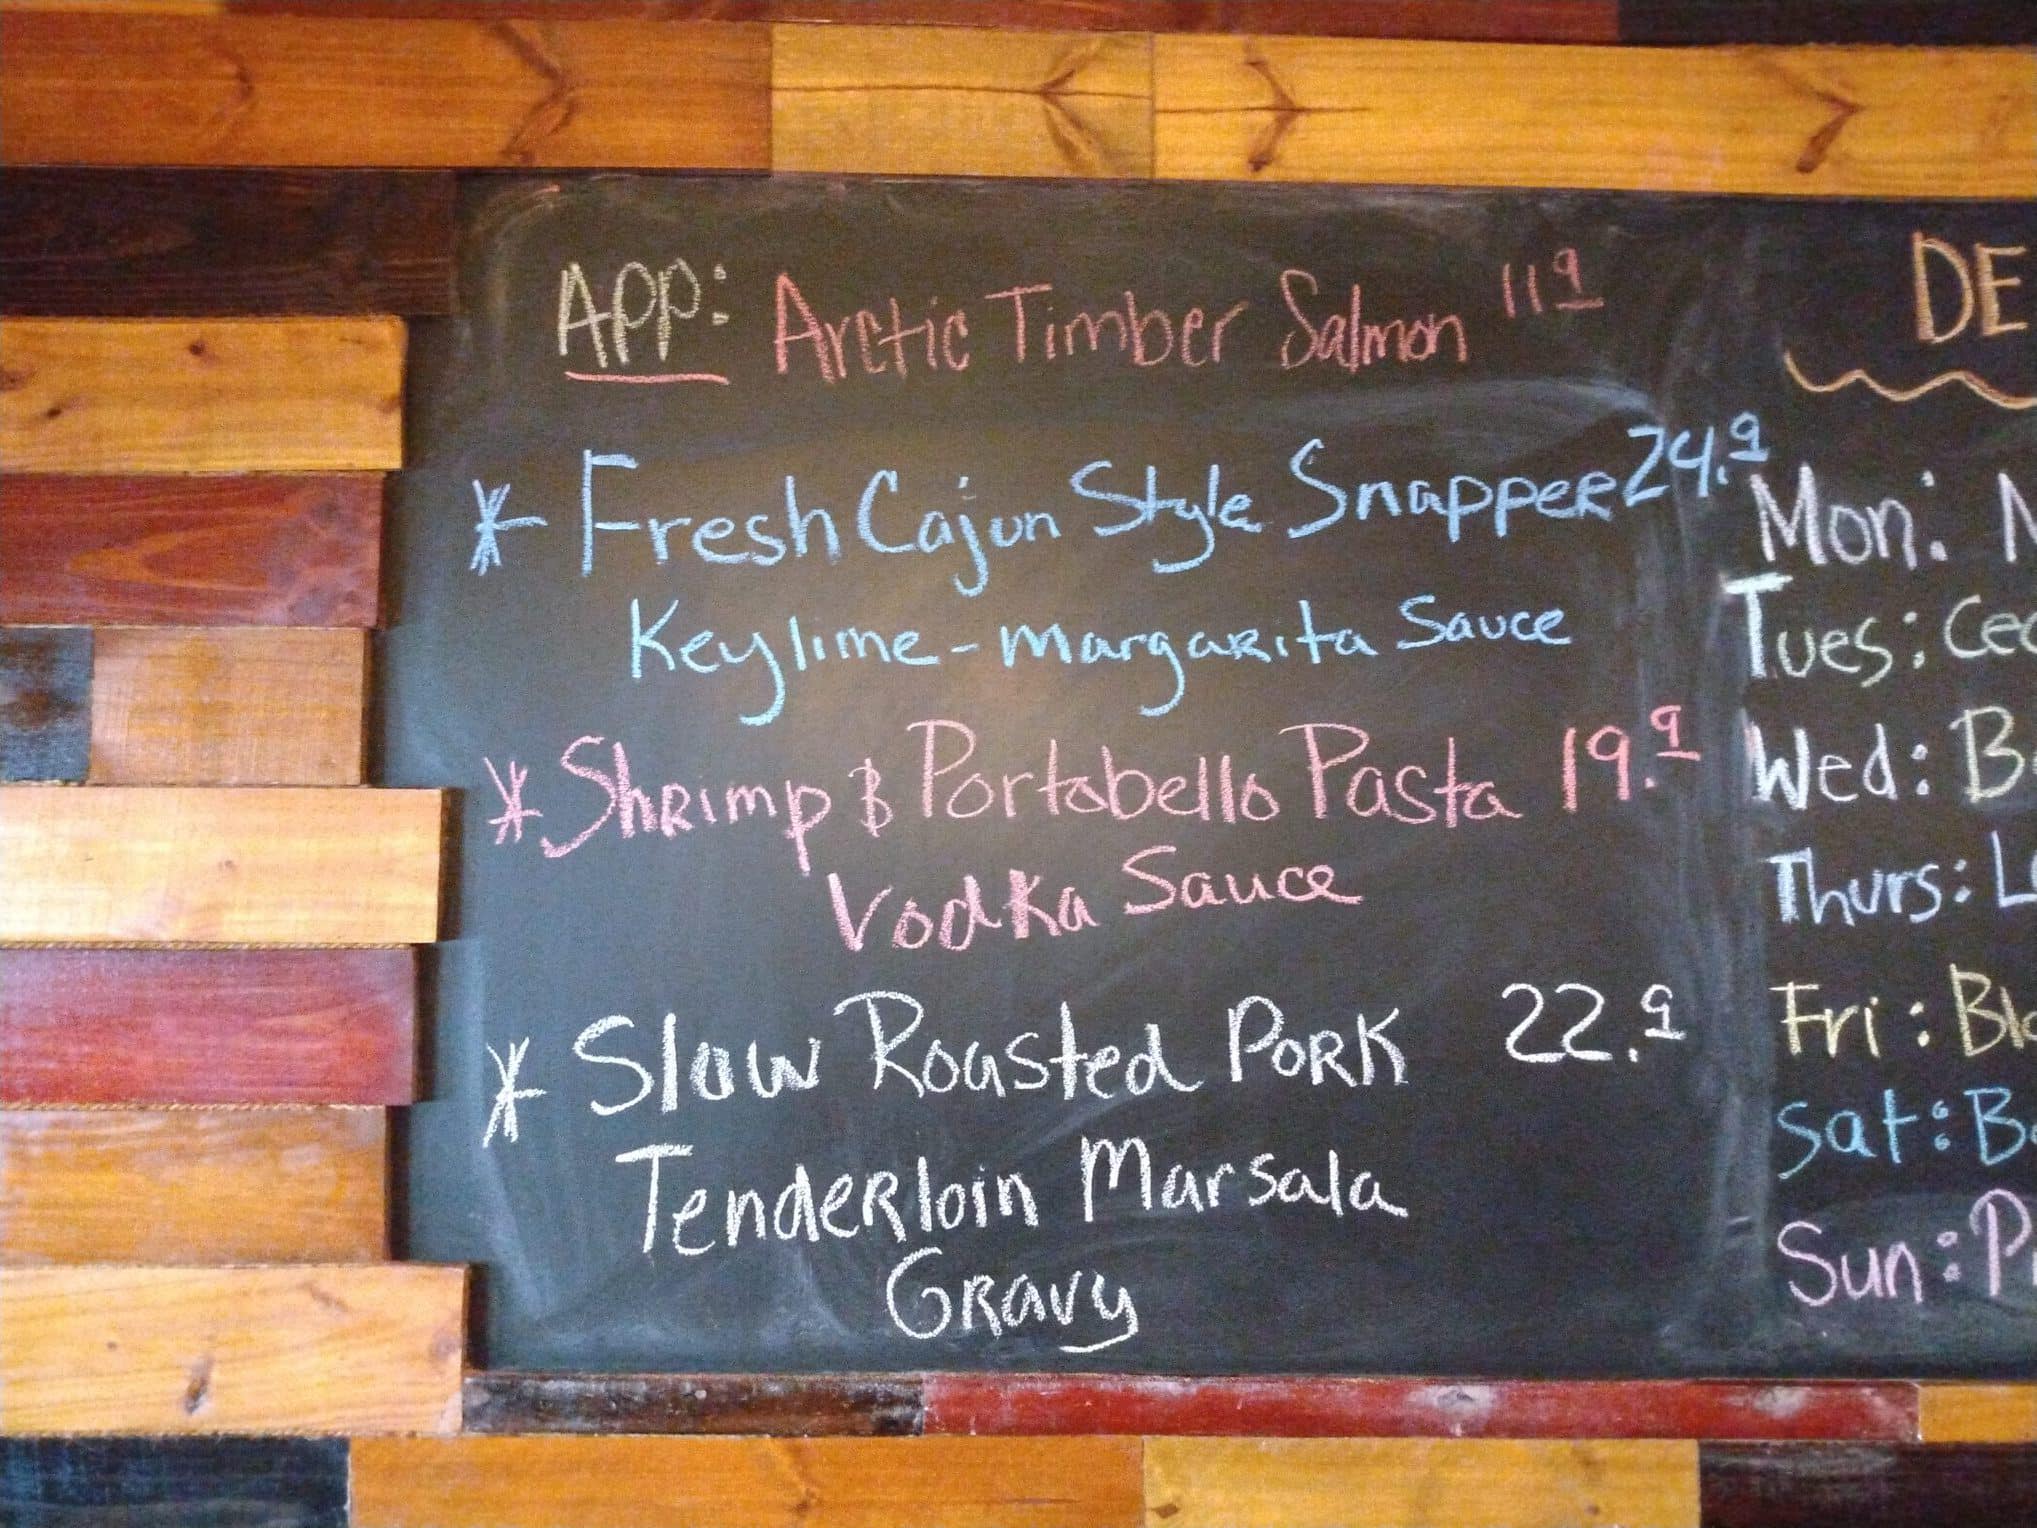 APP: Arctic Timber Salmon 11 9
* Fresh Cajun Style Snapper 24.9
Keylime-Margarita Sauce
* Shrimp & Portabello Pasta 19.9
Vodka Sauce
* Slow Roasted Pork 22.9
Tenderloin Marsala
Gravy
DE
Mon: N
Tues: Cec
Wed: B
Thurs: L
Fri: Ble
Sat: B
Sun: P